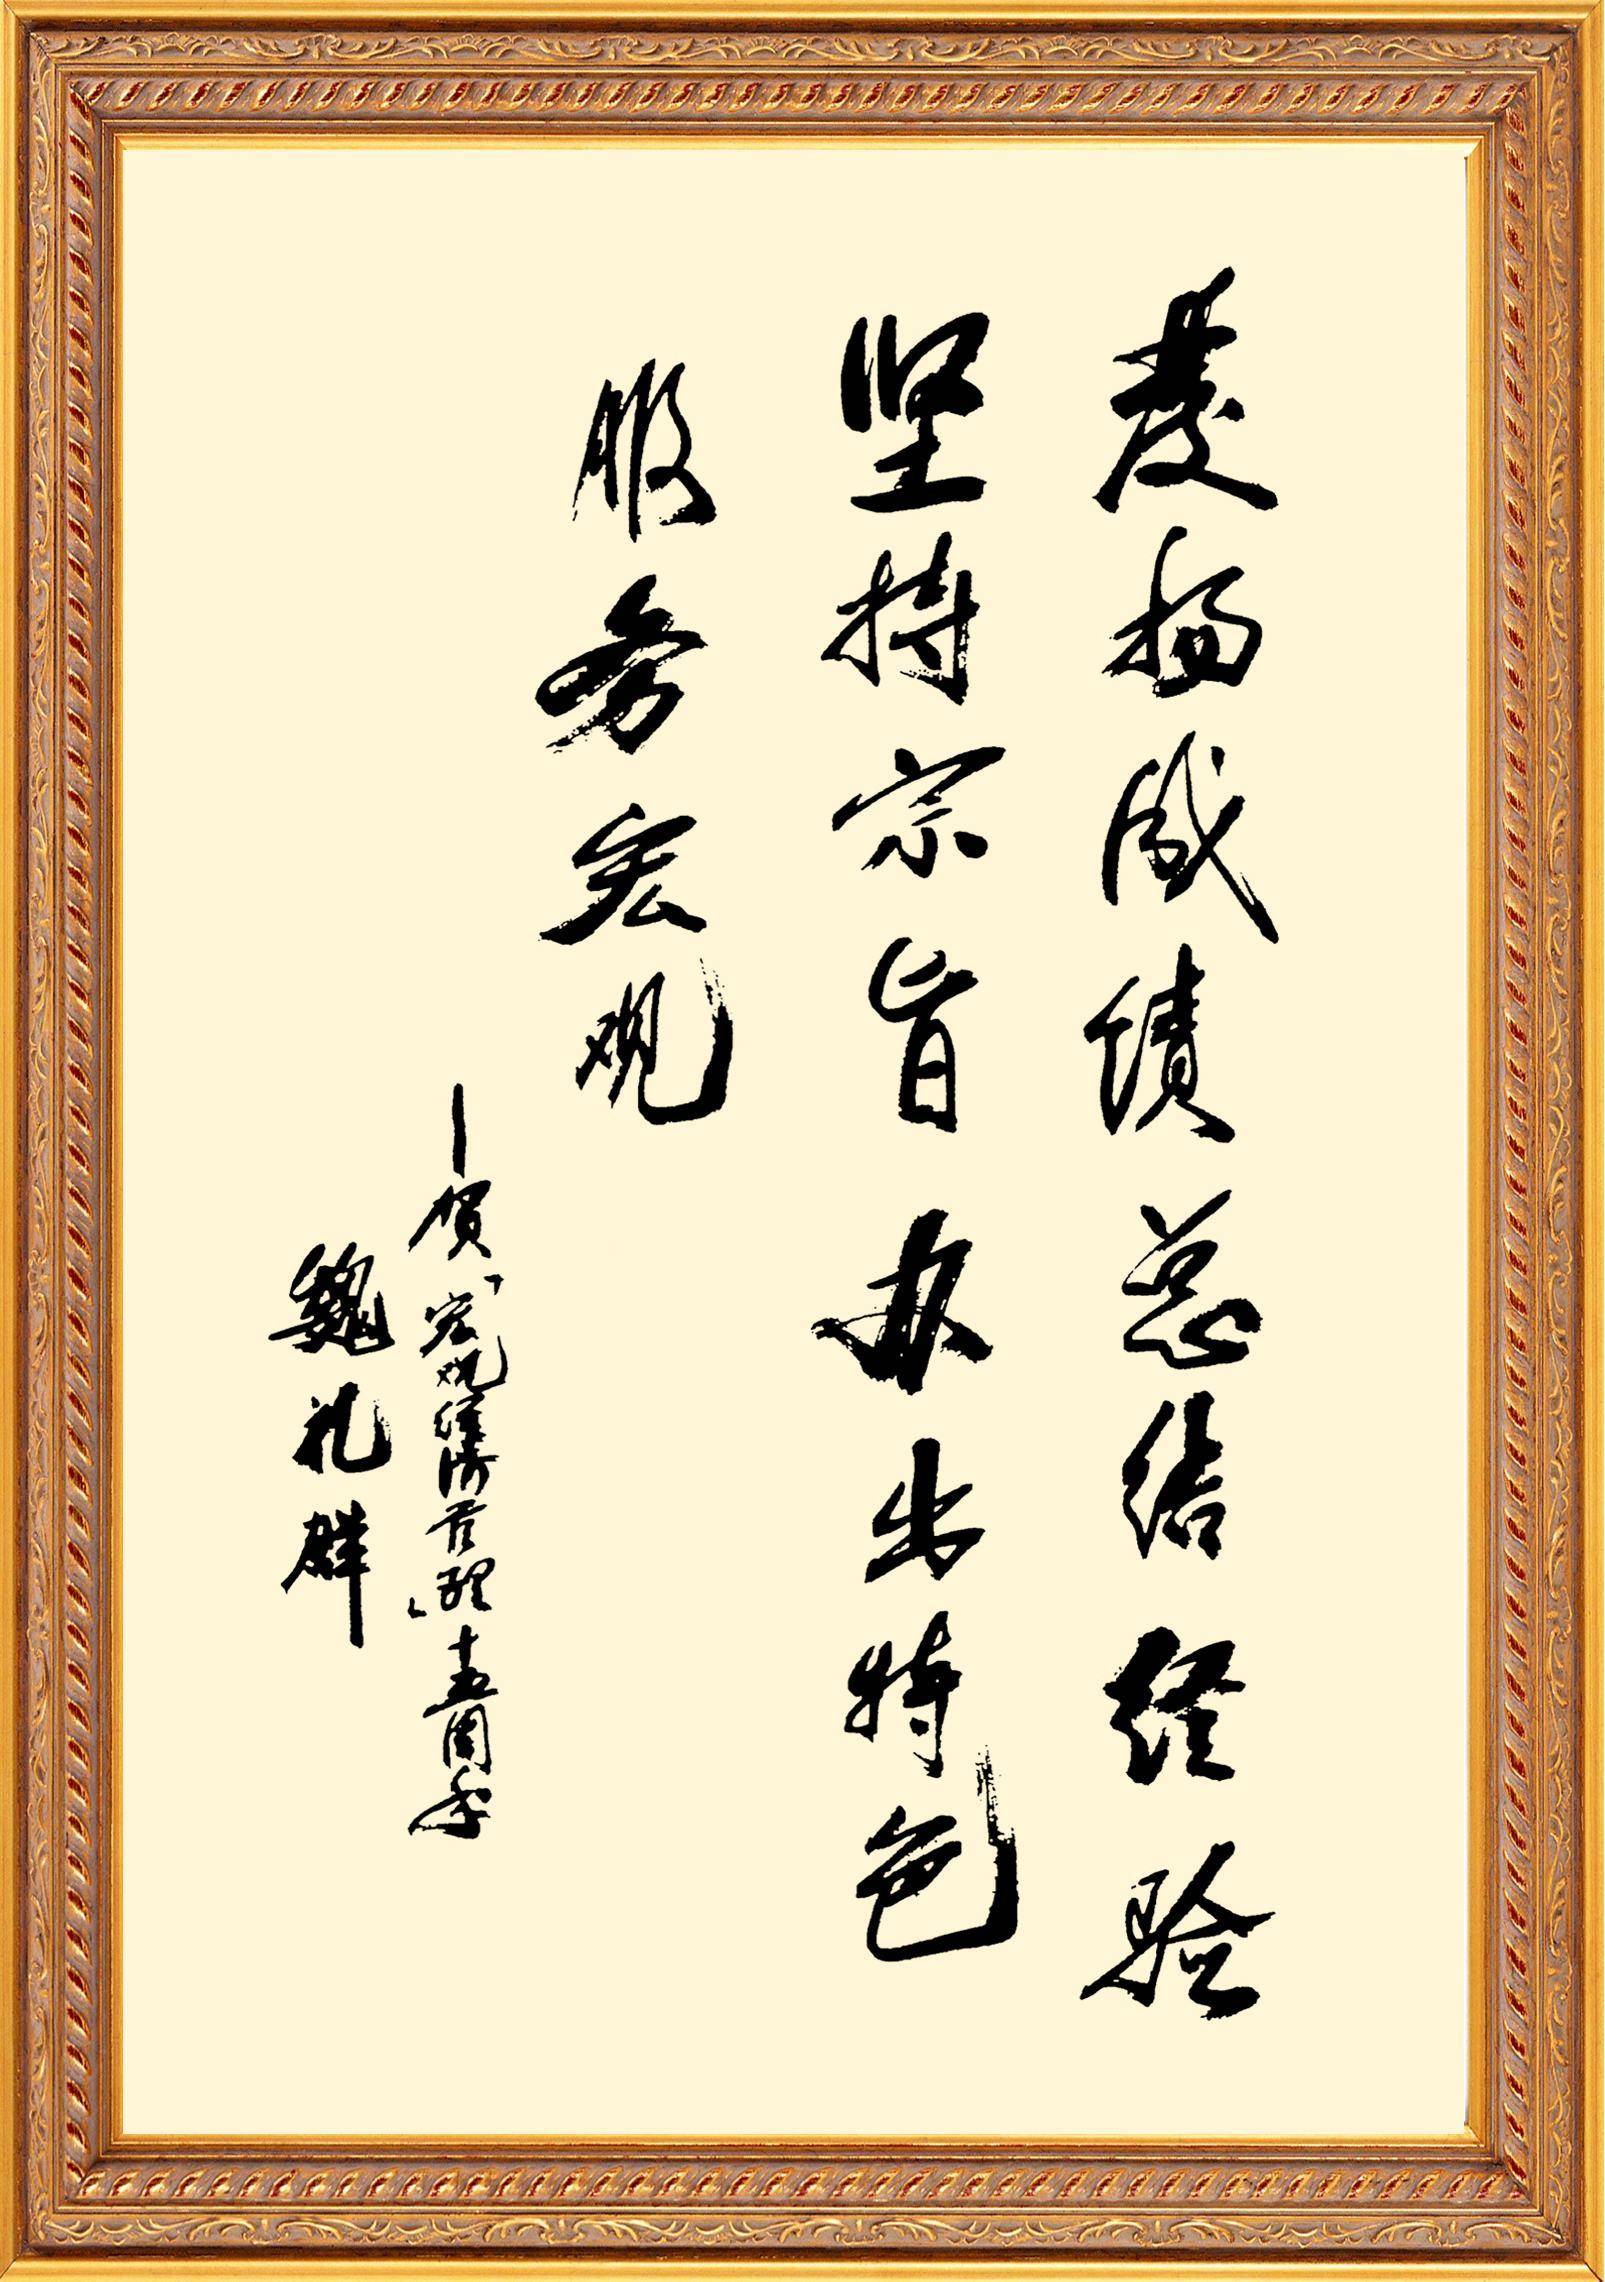 发扬成绩总结经验
坚持宗旨办出特色
服务宏观
—贺「宏观经济管理」十五周年
魏礼群